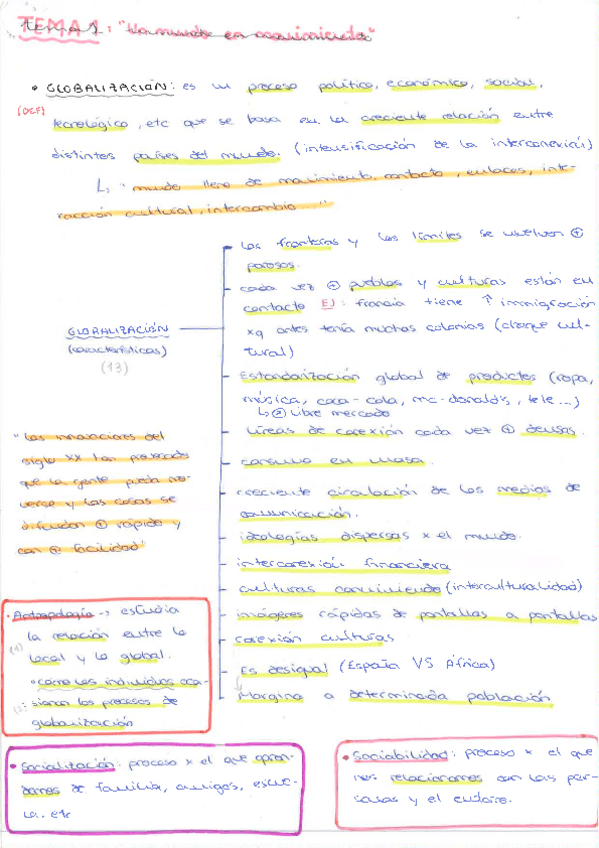 TEMA 1: "Un mundo en movimiento"
• GLOBALIZACIÓN: es un proceso político, económico, social,
(DEF) tecnológico, etc que se basa en la creciente relación entre
distintos países del mundo. (intensificación de la interconexión)
↳ "mundo lleno de movimiento, contacto, enlaces, inte-
racción cultural, intercambio..."
GLOBALIZACIÓN
(características)
(13)
- Las fronteras y los límites se vuelven ⊕
porosos.
- cada vez ⊕ pueblos y culturas están en
contacto EJ: francia tiene ↑ inmigración
xq antes tenía muchas colonias (choque cul-
tural)
- Estandarización global de productos (ropa,
música, coca-cola, mc-donald's, tele...)
↳ libre mercado
- líneas de conexión cada vez ⊕ densas.
- consumo en masa.
- creciente circulación de los medios de
comunicación.
- ideologías dispersas x el mundo.
- interconexión financiera
- culturas conviviendo (interculturalidad)
- imágenes rápidas de pantallas a pantallas
- conexión culturas
- Es desigual (España VS África)
- Margina a determinada población
"Las innovaciones del
siglo XX han provocado
que la gente pueda mo-
verse y las cosas se
difundan ⊕ rápido y
con ⊕ facilidad"
• Antropología -> estudia
la relación entre lo
local y lo global.
• cómo los individuos
los procesos de
globalización
• Socialización: proceso x el que apren-
demos de familia, amigos, escue-
la. etc
• Sociabilidad: proceso x el que
nos relacionamos con las per-
sonas y el entorno.